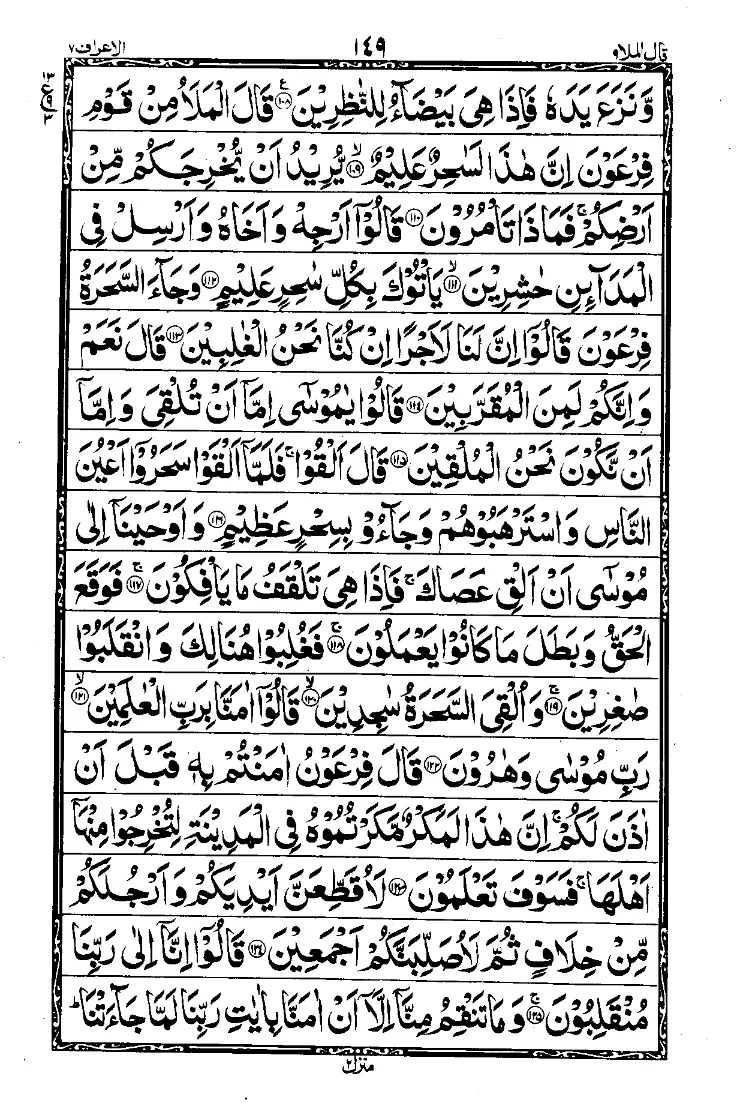 قال الملا۹ ١٤٩ الاعراف۷
وَّنَزَعَ يَدَهٗ فَاِذَا هِىَ بَيْضَآءُ لِلنّٰظِرِيْنَ ﴿۱۰۸﴾ ع قَالَ الْمَلَاُ مِنْ قَوْمِ
فِرْعَوْنَ اِنَّ هٰذَا لَسٰحِرٌ عَلِيْمٌ ﴿۱۰۹﴾ ۙ يُّرِيْدُ اَنْ يُّخْرِجَكُمْ مِّنْ
اَرْضِكُمْ ۚ فَمَاذَا تَاْمُرُوْنَ ﴿۱۱۰﴾ قَالُوْٓا اَرْجِهْ وَاَخَاهُ وَاَرْسِلْ فِى
الْمَدَآئِنِ حٰشِرِيْنَ ﴿۱۱۱﴾ ۙ يَاْتُوْكَ بِكُلِّ سٰحِرٍ عَلِيْمٍ ﴿۱۱۲﴾ وَجَآءَ السَّحَرَةُ
فِرْعَوْنَ قَالُوْٓا اِنَّ لَنَا لَاَجْرًا اِنْ كُنَّا نَحْنُ الْغٰلِبِيْنَ ﴿۱۱۳﴾ قَالَ نَعَمْ
وَاِنَّكُمْ لَمِنَ الْمُقَرَّبِيْنَ ﴿۱۱٤﴾ قَالُوْا يٰمُوْسٰٓى اِمَّآ اَنْ تُلْقِىَ وَاِمَّآ
اَنْ نَّكُوْنَ نَحْنُ الْمُلْقِيْنَ ﴿۱۱۵﴾ قَالَ اَلْقُوْا ۚ فَلَمَّآ اَلْقَوْا سَحَرُوْٓا اَعْيُنَ
النَّاسِ وَاسْتَرْهَبُوْهُمْ وَجَآءُوْ بِسِحْرٍ عَظِيْمٍ ﴿۱۱٦﴾ وَاَوْحَيْنَآ اِلٰى
مُوْسٰٓى اَنْ اَلْقِ عَصَاكَ ۚ فَاِذَا هِىَ تَلْقَفُ مَا يَاْفِكُوْنَ ﴿۱۱۷﴾ ۚ فَوَقَعَ
الْحَقُّ وَبَطَلَ مَا كَانُوْا يَعْمَلُوْنَ ﴿۱۱۸﴾ ۚ فَغُلِبُوْا هُنَالِكَ وَانْقَلَبُوْا
صٰغِرِيْنَ ﴿۱۱۹﴾ ۚ وَاُلْقِىَ السَّحَرَةُ سٰجِدِيْنَ ﴿۱۲۰﴾ ۙ قَالُوْٓا اٰمَنَّا بِرَبِّ الْعٰلَمِيْنَ ﴿۱۲۱﴾ ۙ
رَبِّ مُوْسٰى وَهٰرُوْنَ ﴿۱۲۲﴾ قَالَ فِرْعَوْنُ اٰمَنْتُمْ بِهٖ قَبْلَ اَنْ
اٰذَنَ لَكُمْ ۚ اِنَّ هٰذَا لَمَكْرٌ مَّكَرْتُمُوْهُ فِى الْمَدِيْنَةِ لِتُخْرِجُوْا مِنْهَآ
اَهْلَهَا ۚ فَسَوْفَ تَعْلَمُوْنَ ﴿۱۲۳﴾ لَاُقَطِّعَنَّ اَيْدِيَكُمْ وَاَرْجُلَكُمْ
مِّنْ خِلَافٍ ثُمَّ لَاُصَلِّبَنَّكُمْ اَجْمَعِيْنَ ﴿۱۲٤﴾ قَالُوْٓا اِنَّآ اِلٰى رَبِّنَا
مُنْقَلِبُوْنَ ﴿۱۲۵﴾ ۚ وَمَا تَنْقِمُ مِنَّآ اِلَّآ اَنْ اٰمَنَّا بِاٰيٰتِ رَبِّنَا لَمَّا جَآءَتْنَا ؕ
منزل۲